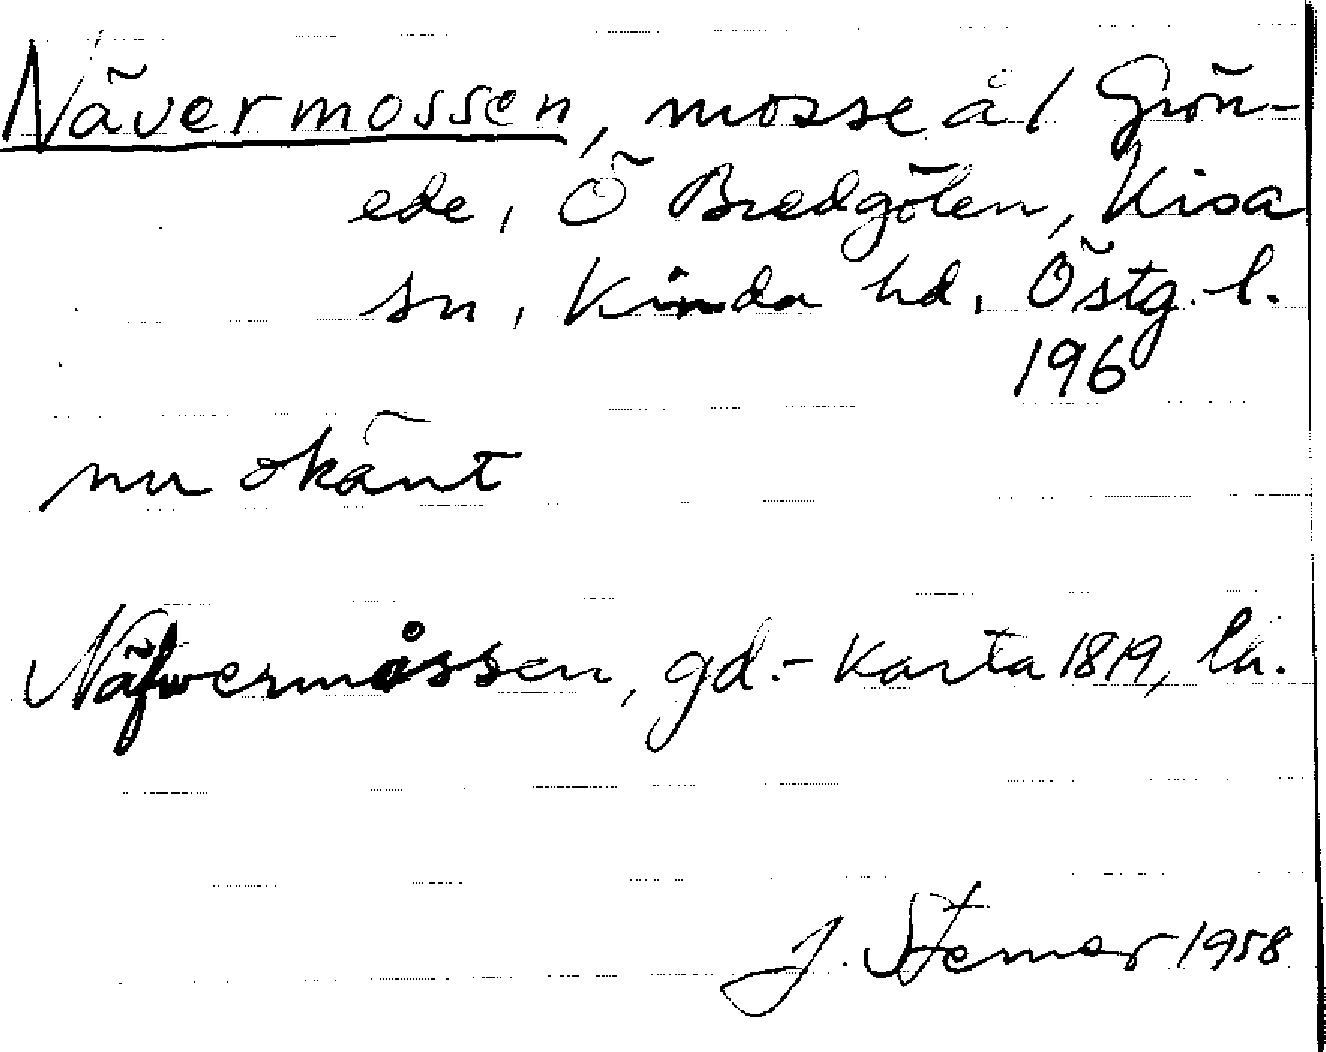 Nävermossen, mosse å 1 Grön-
ede, Ö Bredgölen, Kisa
sn, Kinda hd, Östg. l.
196
nu okänt
Näfwermåssen, gd.- karta 1819, la.
J. Stemar 1958